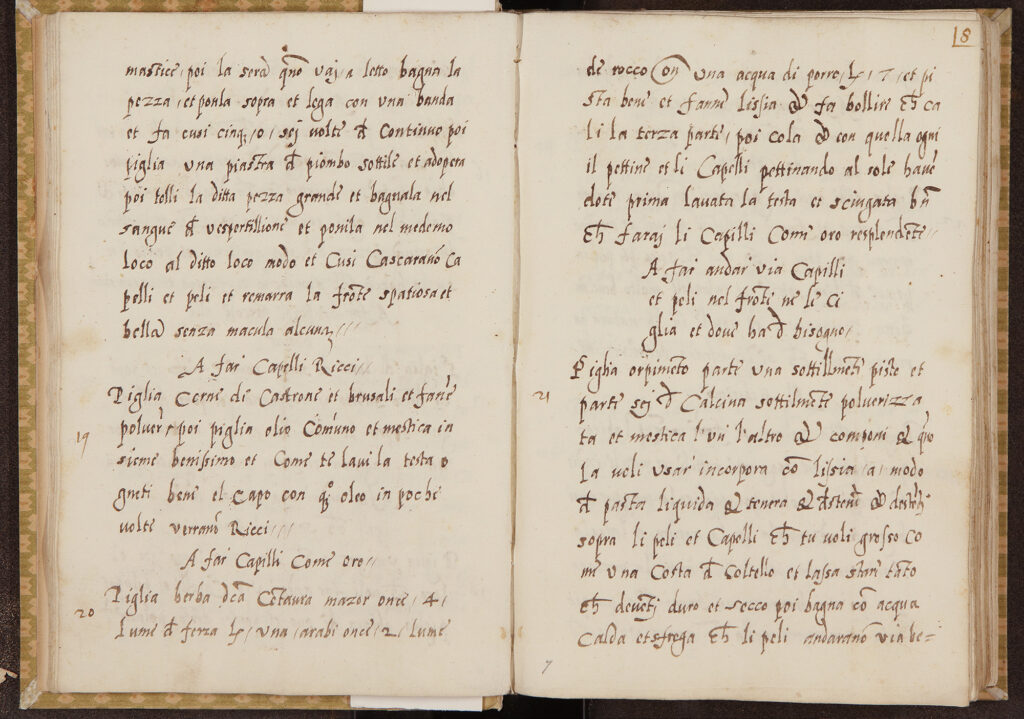 mastice, poi la sera qño vaj, a letto bagna la
pezza, et ponla sopra et lega con una banda
et fa cusi cinq;, o, sej volte đ continuo poi
piglia una piastra đ piombo sottile et adopera
poi tolli la ditta pezza grande et bagnala nel
sangue đ vespertillione et ponila nel medemo
loco al ditto loco modo et Cusi Cascaranō Ca
pelli et peli et remarra la frōte spatiosa et
bella senza macula alcuna,///
A far Capelli Ricci,/
19
Piglia Corne di Castrone et brusali et fane
polver, poi piglia olio Comuno et mestica in
sieme benissimo et Come te lavi la testa o
gneti bene el Capo con qº oleo in poche
volte verranō Ricci,//
A far Capilli Come oro//
20
Piglia herba dcā Cētaura mazor once, 4,
lume đ ferza ℔, una, arabi once, 2, lume
18
de rocco on una acqua di porre, ℔, 7, et pi
sta bene et fanne lissia & fa bollire cħ ca
li la terza parte, poi cola & con quella ogni
il pettine et li Capelli pettinando al sole have
dote prima lavata la testa et sciugata bñ
cħ faraj li Capilli Come oro resplendēti//
A far andar via Capilli
et peli nel frōte ne le ci
glia et dove ha đ bisogno/
21
Piglia orpimēto parte una sottillmēte piste et
parti sej đ Calcina sottilmēte polverizza
ta et mestica l'uñ l'altro & componi & qño
la voli usar incorpora cō lissia, a, modo
đ pasta liquida & tenera &
sopra li peli et Capelli cħ tu voli grosso co
me una Costa đ Coltello et lassa stare tāto
cħ deventi duro et secco poi bagna cō acqua
Calda et sfrega cħ li peli andaranō via be=
7